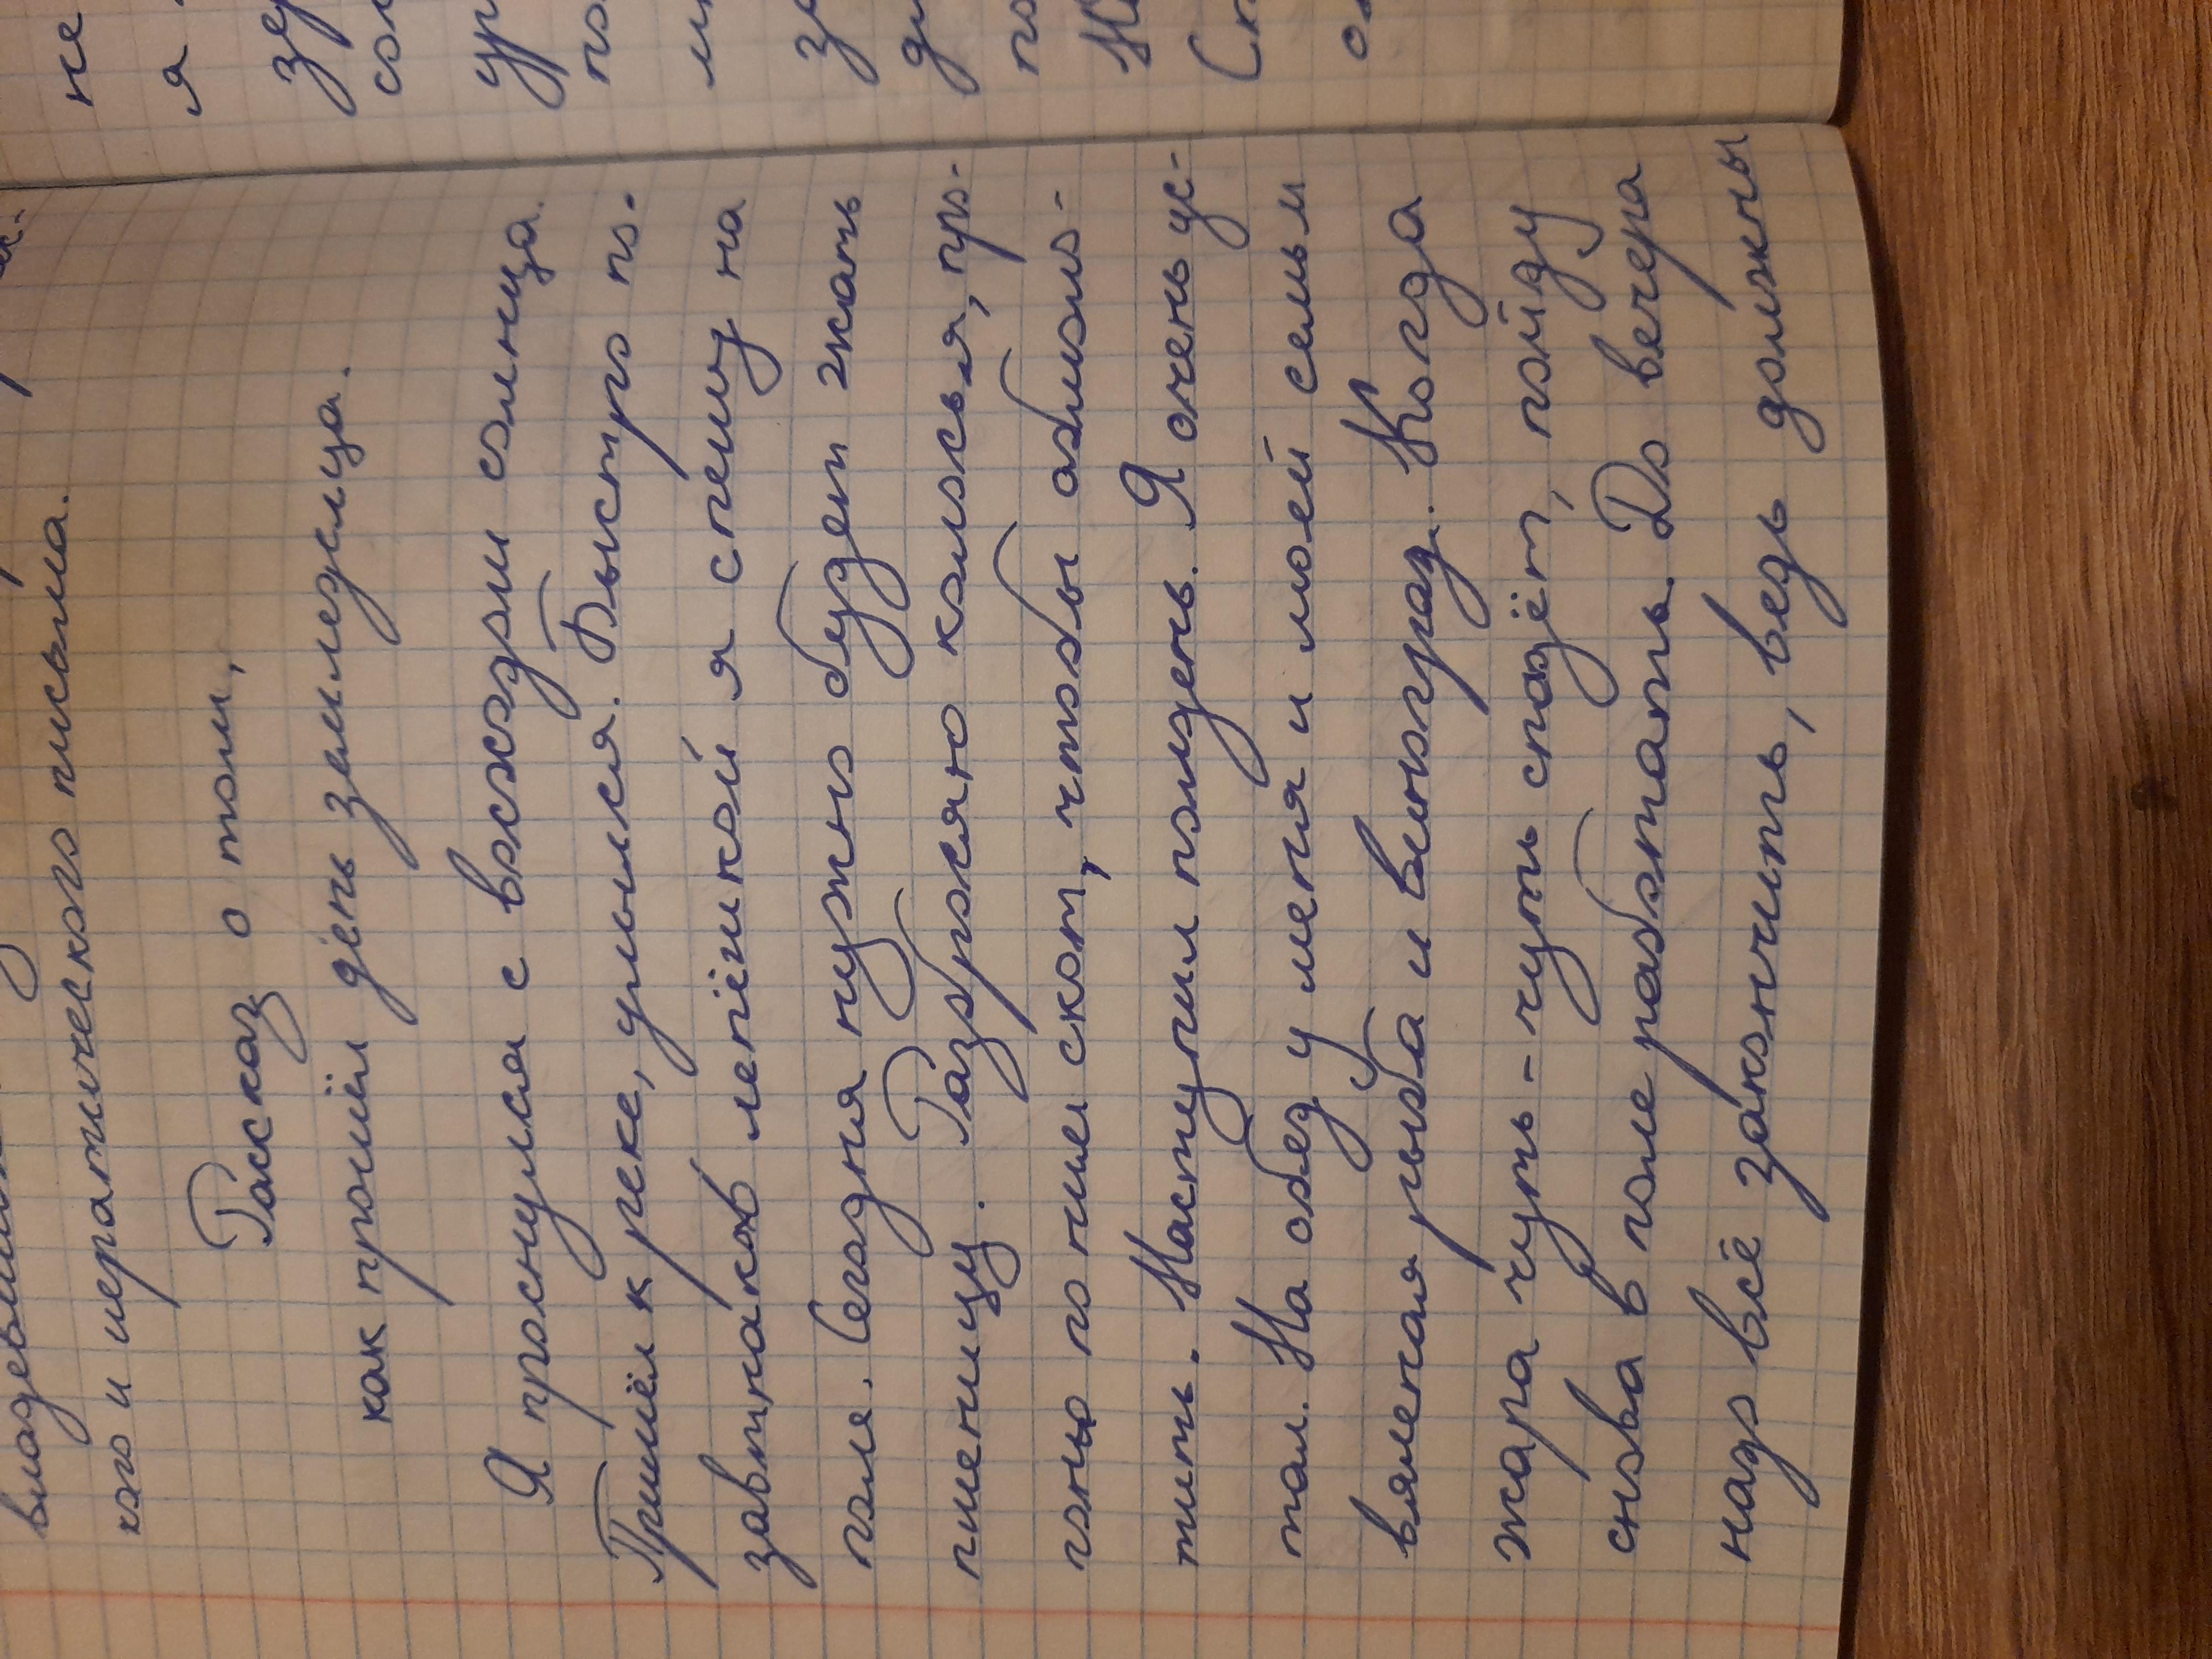 кого и иератического письма.
Рассказ о том,
как прошёл день земледельца.
Я проснулся с восходом солнца.
Пришёл к реке, умылся. Быстро по-
завтракав лепёшкой я спешу на
поле. Сегодня нужно будет жать
пшеницу. Разбросаю колосья, про-
гоню по ним скот, чтобы обмоло-
тить. Наступил полдень. Я очень ус-
тал. На обед у меня и моей семьи
вяленая рыба и виноград. Когда
жара чуть-чуть спадёт, пойду
снова в поле работать. До вечера
надо всё закончить, ведь должны
не
я